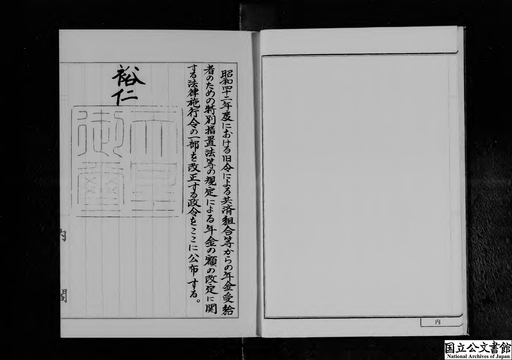 昭和四十二年度における旧令による共済組合等からの年金受給
者のための特別措置法等の規定による年金の額の改定に関
する法律施行令の一部を改正する政令をここに公布する。
裕仁
天皇
御璽
内閣
内
国立公文書館
National Archives of Japan